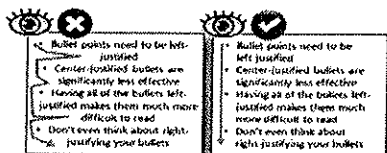 • Bullet points need to be left-
justified
• Center-justified bullets are
significantly less effective
• Having all of the bullets left-
justified makes them much more
difficult to read
• Don't even think about right-
justifying your bullets
• Bullet points need to be
left justified
• Center-justified bullets are
significantly less effective
• Having all of the bullets left-
justified makes them much
more difficult to read
• Don't even think about
right-justifying your bullets